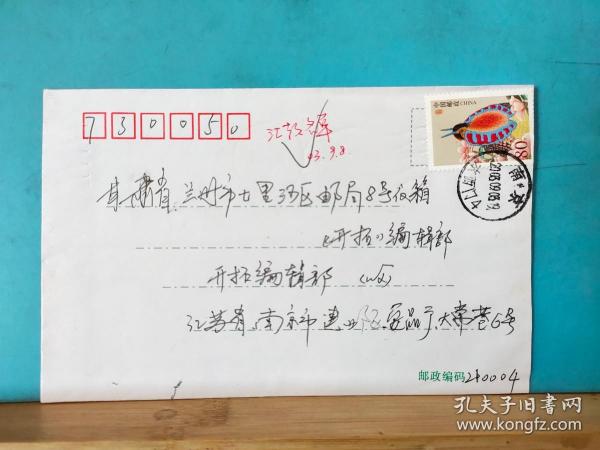 730050
03.9.8
中国邮政 CHINA
80
南京
2003.09.05
甘肃省兰州市七里河区邮局8号信箱
《开拓》编辑部
开拓编辑部 (收)
江苏省南京市建邺区食品厂大常巷6号
邮政编码 210004
孔夫子旧书网
www.kongfz.com